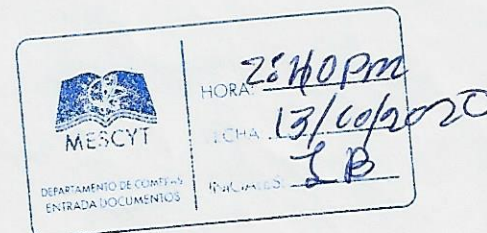 MESCYT
DEPARTAMENTO DE COMPRAS
ENTRADA DOCUMENTOS
HORA: 2:40 pm
FECHA 13/10/2020
INICIALES: LB